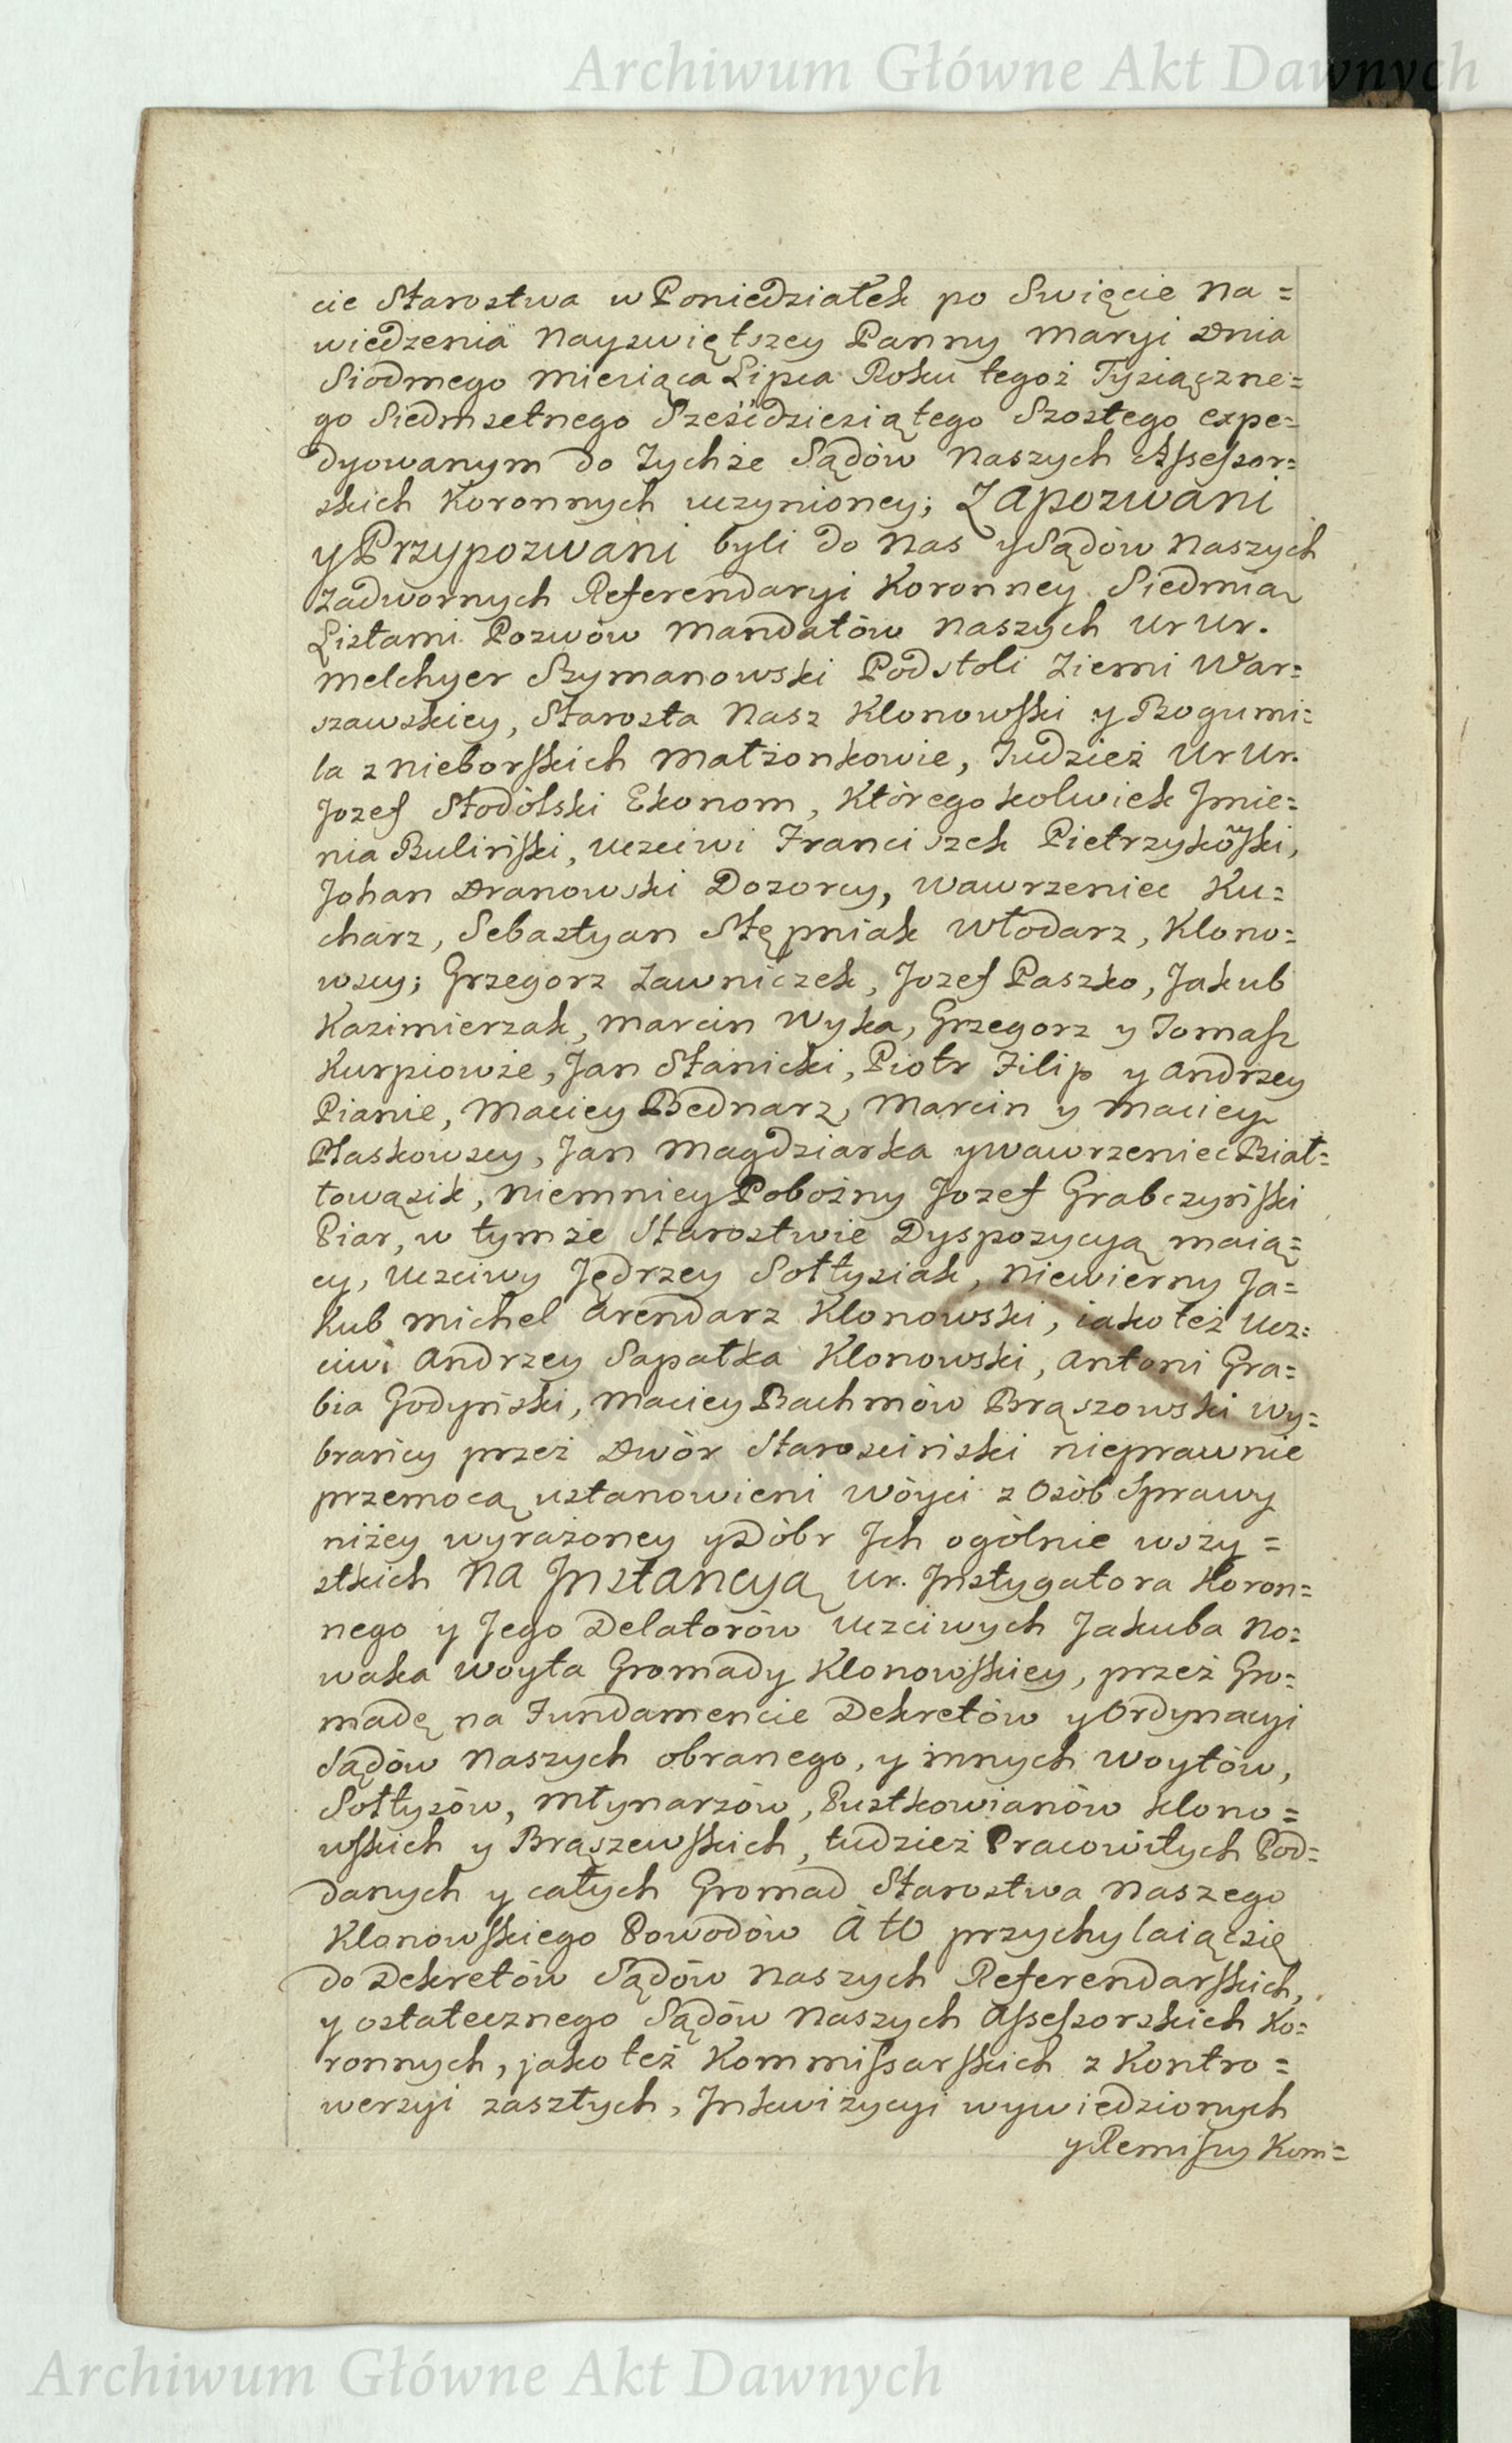 Archiwum Główne Akt Dawnych
cie Starostwa w Poniedziałek po Swięcie Na=
wiedzenia Nayswiętszey Panny Maryi Dnia
Siodmego Miesiąca Lipca Roku tegoż Tysiączne=
go Siedmsetnego Sześćdziesiątego Szostego expe=
dyowanym do Tychże Sądów Naszych Assessor=
skich Koronnych uczynioney; Zapozwani
y Przypozwani byli do Nas y Sądów Naszych
Zadwornych Referendaryi Koronney Siedmią
Listami Pozwów Mandatów Naszych Ur Ur.
Melchyer Szymanowski Podstoli Ziemi War=
szawskiey, Starosta Nasz Klonowski y Bogumi=
la z Nieborskich Małżonkowie, Tudzież Ur Ur.
Jozef Stodólski Ekonom, Którego kolwiek Jmie=
nia Buliński, Uczciwi Franciszek Pietrzykowski,
Johan Dranowski Dozorcy, Wawrzeniec Ku=
charz, Sebastyan Stępniak Włodarz, Klono=
wscy; Grzegorz Ławniczek, Jozef Paszko, Jakub
Kazimierzak, Marcin Wyka, Grzegorz y Tomasz
Kurpiowie, Jan Stanicki, Piotr Filip y Andrzey
Pianie, Maciey Bednarz, Marcin y Maciey
Płaskowscy, Jan Magdziarka y Wawrzeniec Biał=
towąsik, niemniey Pobożny Jozef Grabczyński
Piar, w tymże Starostwie Dyspozycyą maią=
cy, Uczciwy Jędrzey Sołtysiak, niewierny Ja=
kub Michel Arendarz Klonowski, iako też Ucz=
ciwi Andrzey Sapałka Klonowski, Antoni Gra=
bia Godyński, Maciey Bachmów Brąszowski wy=
brańcy przez Dwór Starościński nieprawnie
przemocą ustanowieni wóyci z Osób Sprawy
niżey wyrażoney y Dóbr Jch ogólnie wszy=
stkich Na Jnstancyą Ur. Jnstygatora Koron=
nego y Jego Delatorów Uczciwych Jakuba No=
waka Woyta Gromady Klonowskiey, przez Gro=
madę na Fundamencie Dekretów y Ordynacyi
Sądów Naszych obranego, y innych Woytów,
Sołtysów, Młynarzów, Pustkowianów Klono=
wskich y Brąszewskich, tudzież Pracowitych Pod=
danych y całych Gromad Starostwa Naszego
Klonowskiego Powodów A to przychylaiąc się
do Dekretów Sądów Naszych Referendarskich,
y ostatecznego Sądów Naszych Assessorskich Ko=
ronnych, jako też Kommissarskich z Kontro=
wersyi zaszłych, Jnkwizycyi wywiedzionych
y Remissy Kom=
Archiwum Główne Akt Dawnych